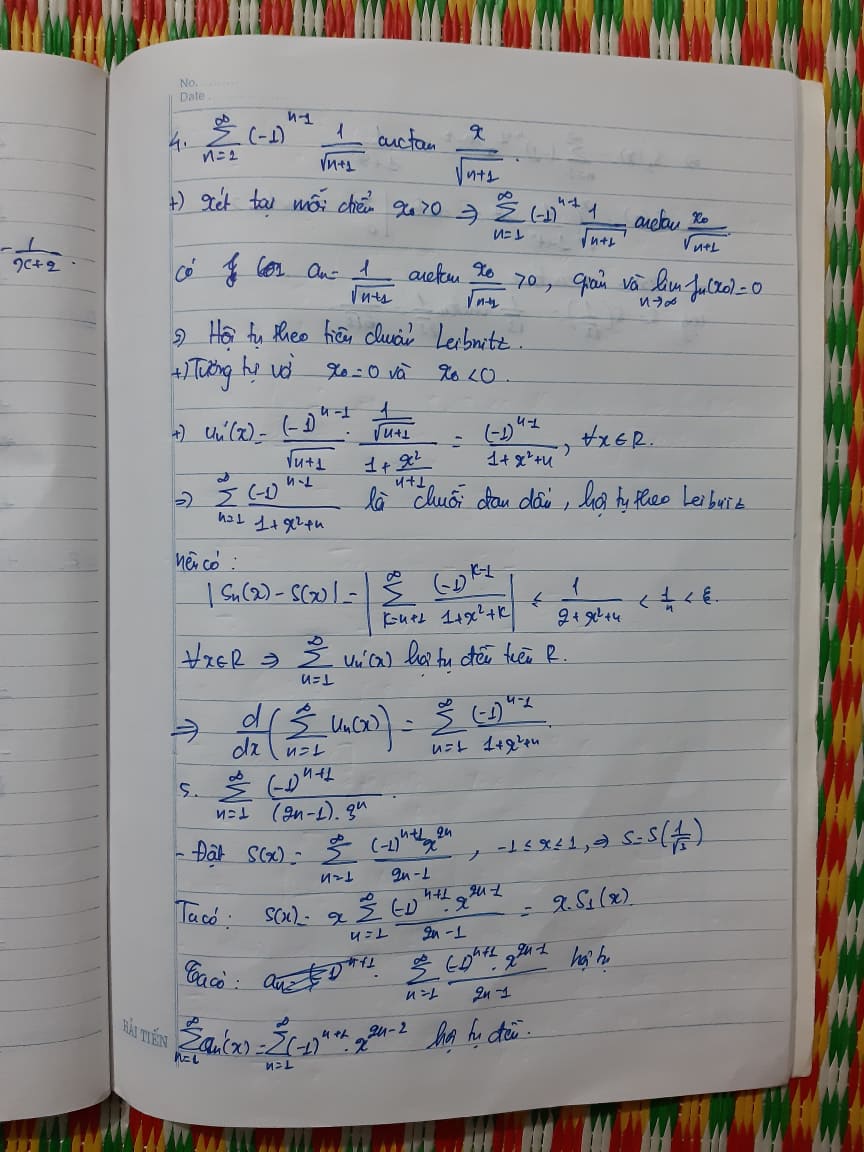 No.
Date
4. ∑_{n=1}^{∞} (-1)^{n-1} 1/√(n+1) arctan x/√(n+1).
+) Xét tại mỗi điểm x₀ > 0 ⇒ ∑_{n=1}^{∞} (-1)^{n-1} 1/√(n+1) arctan x₀/√(n+1)
-1/(x+2).
có aₙ = 1/√(n+1) arctan x₀/√(n+1) > 0, giảm và lim_{n→∞} fₙ(x₀) = 0
⇒ Hội tụ theo tiêu chuẩn Leibnitz.
+) Tương tự với x₀ = 0 và x₀ < 0.
+) uₙ'(x) = (-1)^{n-1}/√(n+1) · (1/√(n+1))/(1 + x²/(n+1)) = (-1)^{n-1}/(1+x²+n), ∀x∈R.
⇒ ∑_{n=1}^{∞} (-1)^{n-1}/(1+x²+n) là chuỗi đan dấu, hội tụ theo Leibnitz
Nên có:
|Sₙ(x) - S(x)| = |∑_{k=n+1}^{∞} (-1)^{k-1}/(1+x²+k)| ≤ 1/(2+x²+n) < 1/n < ε.
∀x∈R ⇒ ∑_{n=1}^{∞} uₙ'(x) hội tụ đều trên R.
⇒ d/dx (∑_{n=1}^{∞} uₙ(x)) = ∑_{n=1}^{∞} (-1)^{n-1}/(1+x²+n).
5. ∑_{n=1}^{∞} (-1)^{n+1}/((2n-1).3ⁿ).
- Đặt S(x) = ∑_{n=1}^{∞} (-1)^{n+1} x^{2n}/(2n-1), -1 ≤ x ≤ 1, ⇒ S = S(1/√3)
Ta có: S(x) = x ∑_{n=1}^{∞} (-1)^{n+1}.x^{2n-1}/(2n-1) = x.S₁(x).
Ta có: ∑_{n=1}^{∞} (-1)^{n+1}.x^{2n-1}/(2n-1) hội tụ
∑_{n=1}^{∞} aₙ'(x) = ∑_{n=1}^{∞} (-1)^{n+1}.x^{2n-2} hội tụ đều.
HẢI TIẾN